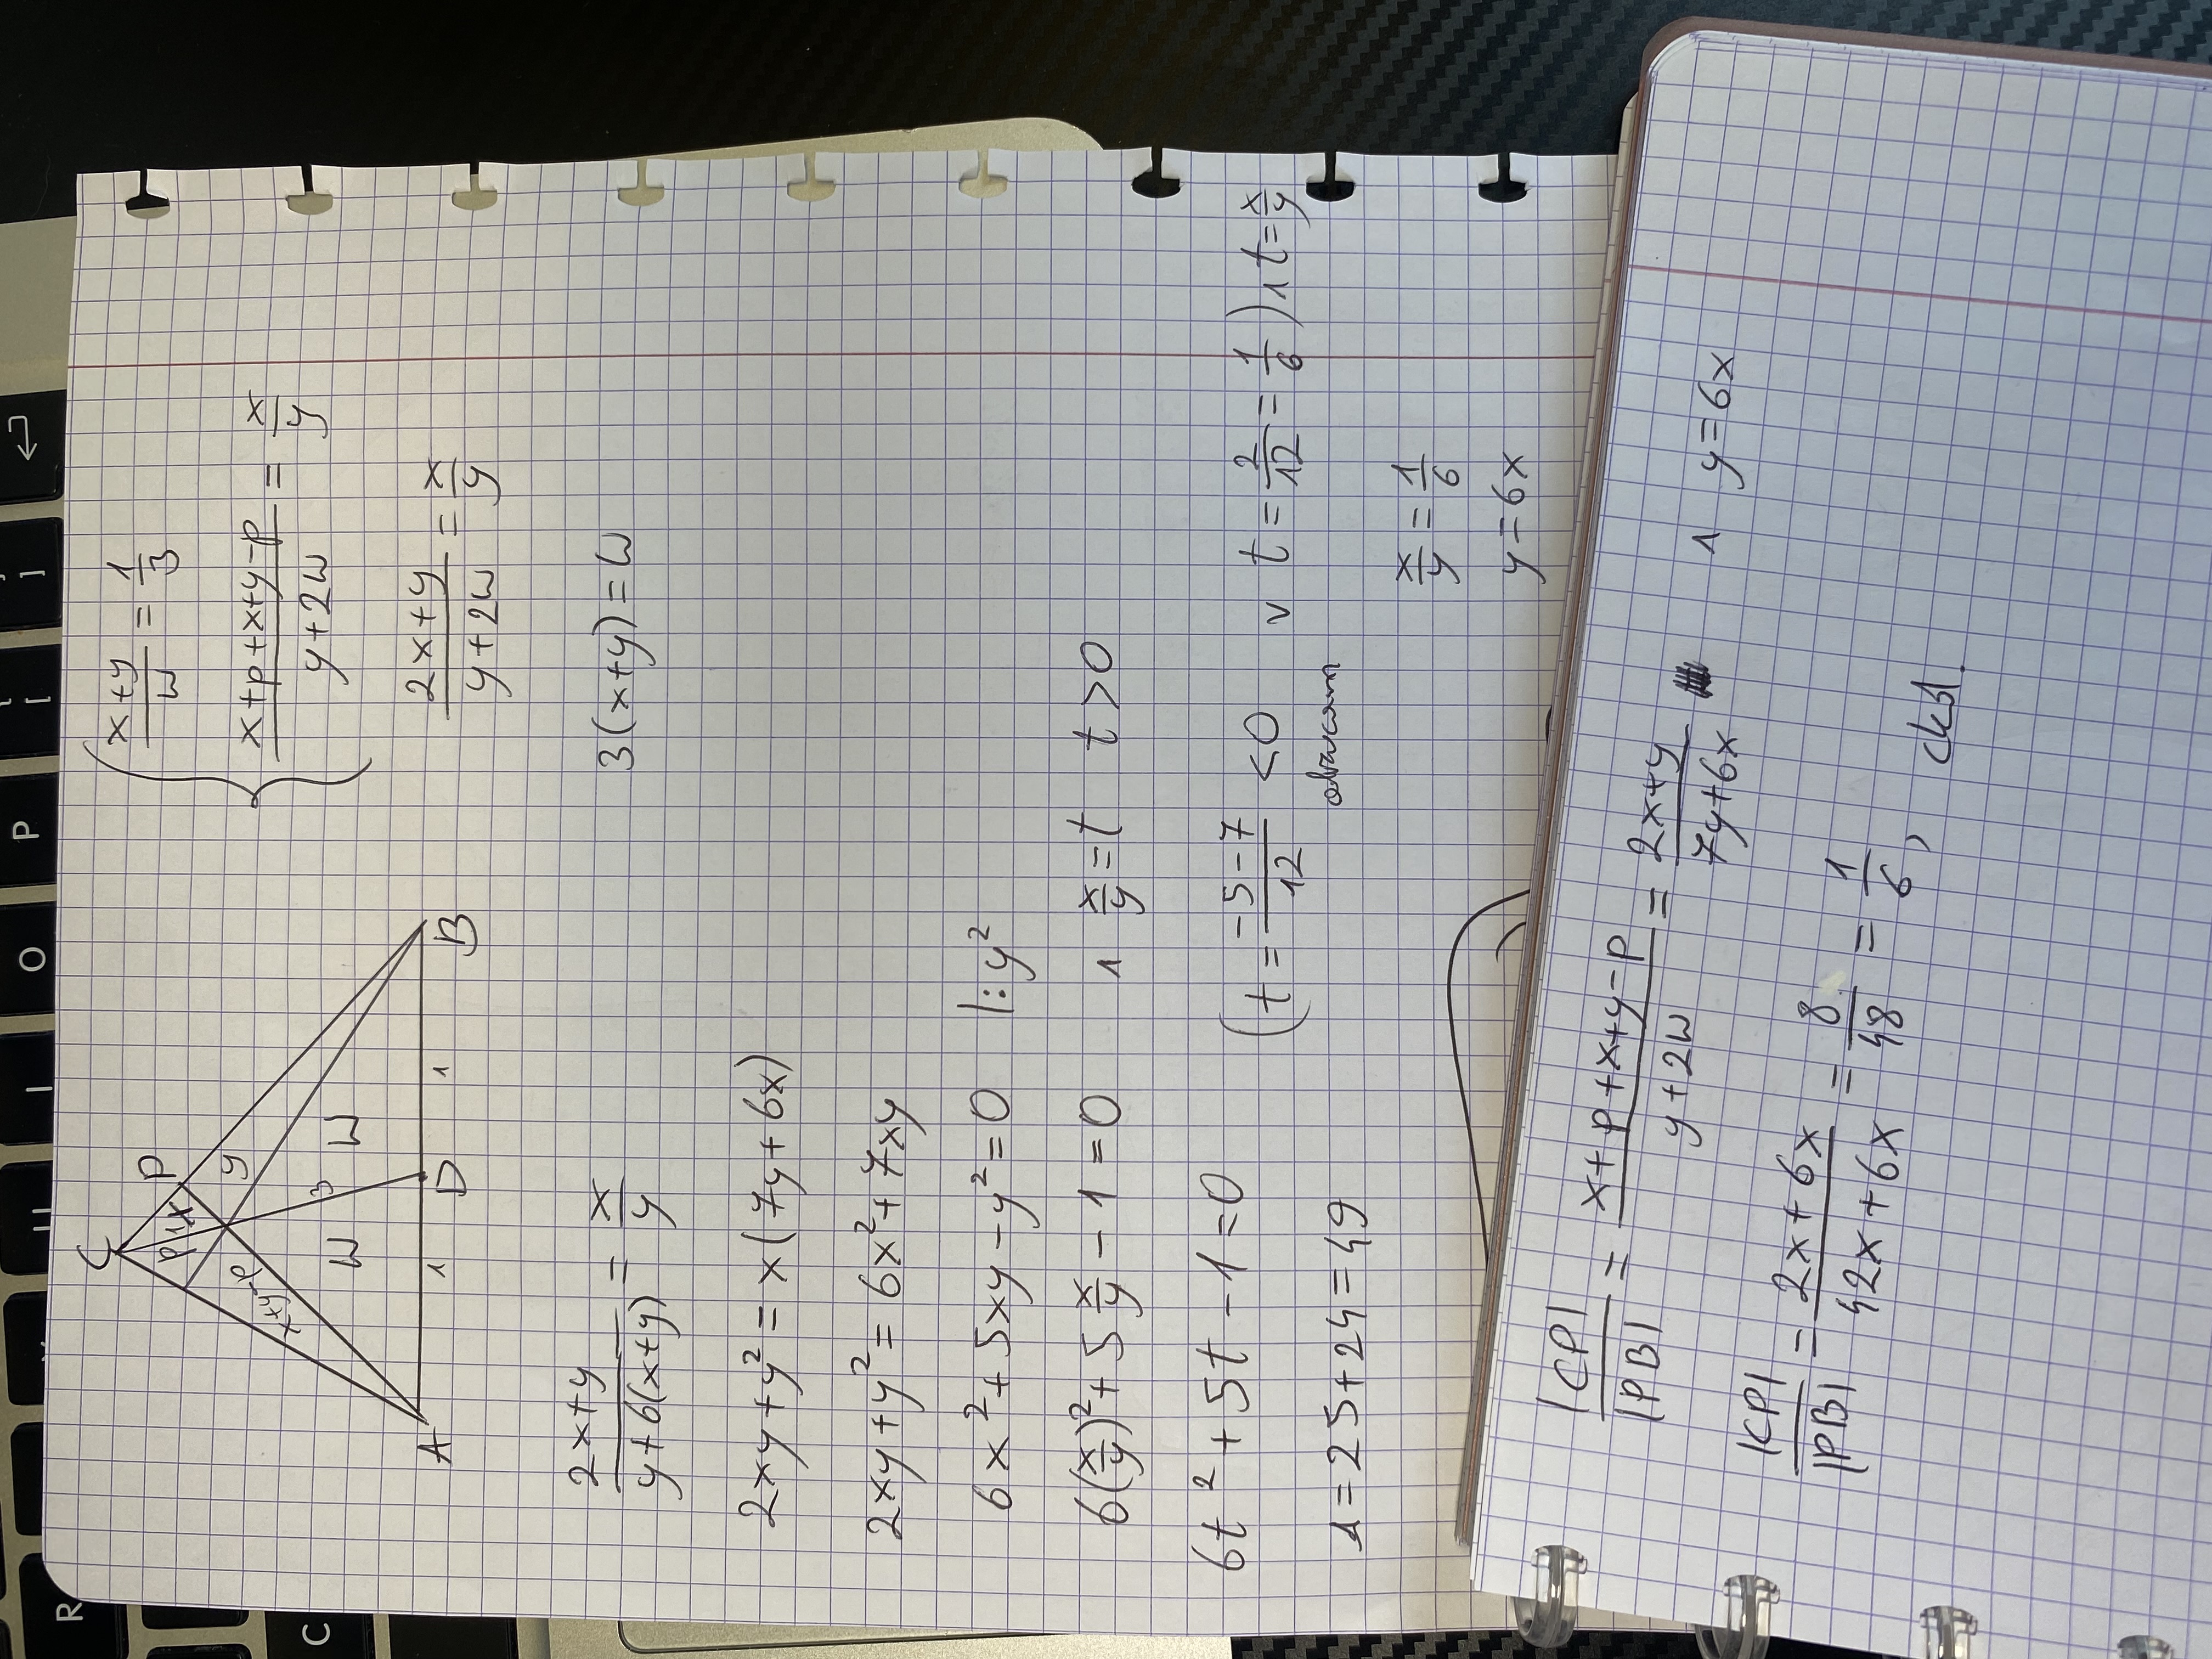 C
P
p
x
y
x+y-p
3
W
W
1
1
A
D
B
(x+y)/W = 1/3
(x+p+x+y-p)/(y+2W) = x/y
(2x+y)/(y+2W) = x/y
(2x+y)/(y+6(x+y)) = x/y
3(x+y)=W
2xy+y² = x(7y+6x)
2xy+y² = 6x²+7xy
6x²+5xy-y²=0 |:y²
6(x/y)²+5 x/y -1=0 ∧ x/y=t t>0
6t²+5t-1=0
(t = (-5-7)/12 <0 ∨ t = 2/12 = 1/6) ∧ t=x/y
Δ=25+24=49
x/y = 1/6
y=6x
|CP|/|PB| = (x+p+x+y-p)/(y+2W) = (2x+y)/(7y+6x) ∧ y=6x
|CP|/|PB| = (2x+6x)/(42x+6x) = 8/48 = 1/6, ckd.
R
C
I
O
P
[
]